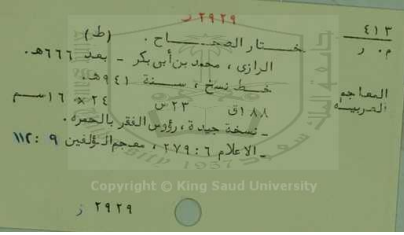 ٢٩٢٩ ز
٤١٣
م . ر
مختار الصحاح . (ط)
الرازي ، محمد بن أبي بكر - بعد ٦٦٦هـ .
خط نسخ ، سنة ٩٤١هـ .
المعاجم العربية
١٨٨ق ٢٣س ٢٤×١٦سم
- نسخة جيدة ، رؤوس الفقر بالحمرة .
- الاعلام ٦ : ٢٧٩ ، معجم المؤلفين ٩ : ١١٢
Copyright © King Saud University
٢٩٢٩ ز